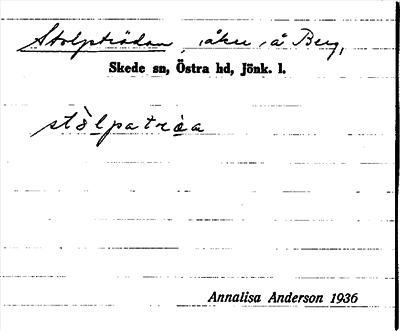 Stolpträdan, åker å Berg,
Skede sn, Östra hd, Jönk. l.
stòlpatràa
Annalisa Anderson 1936